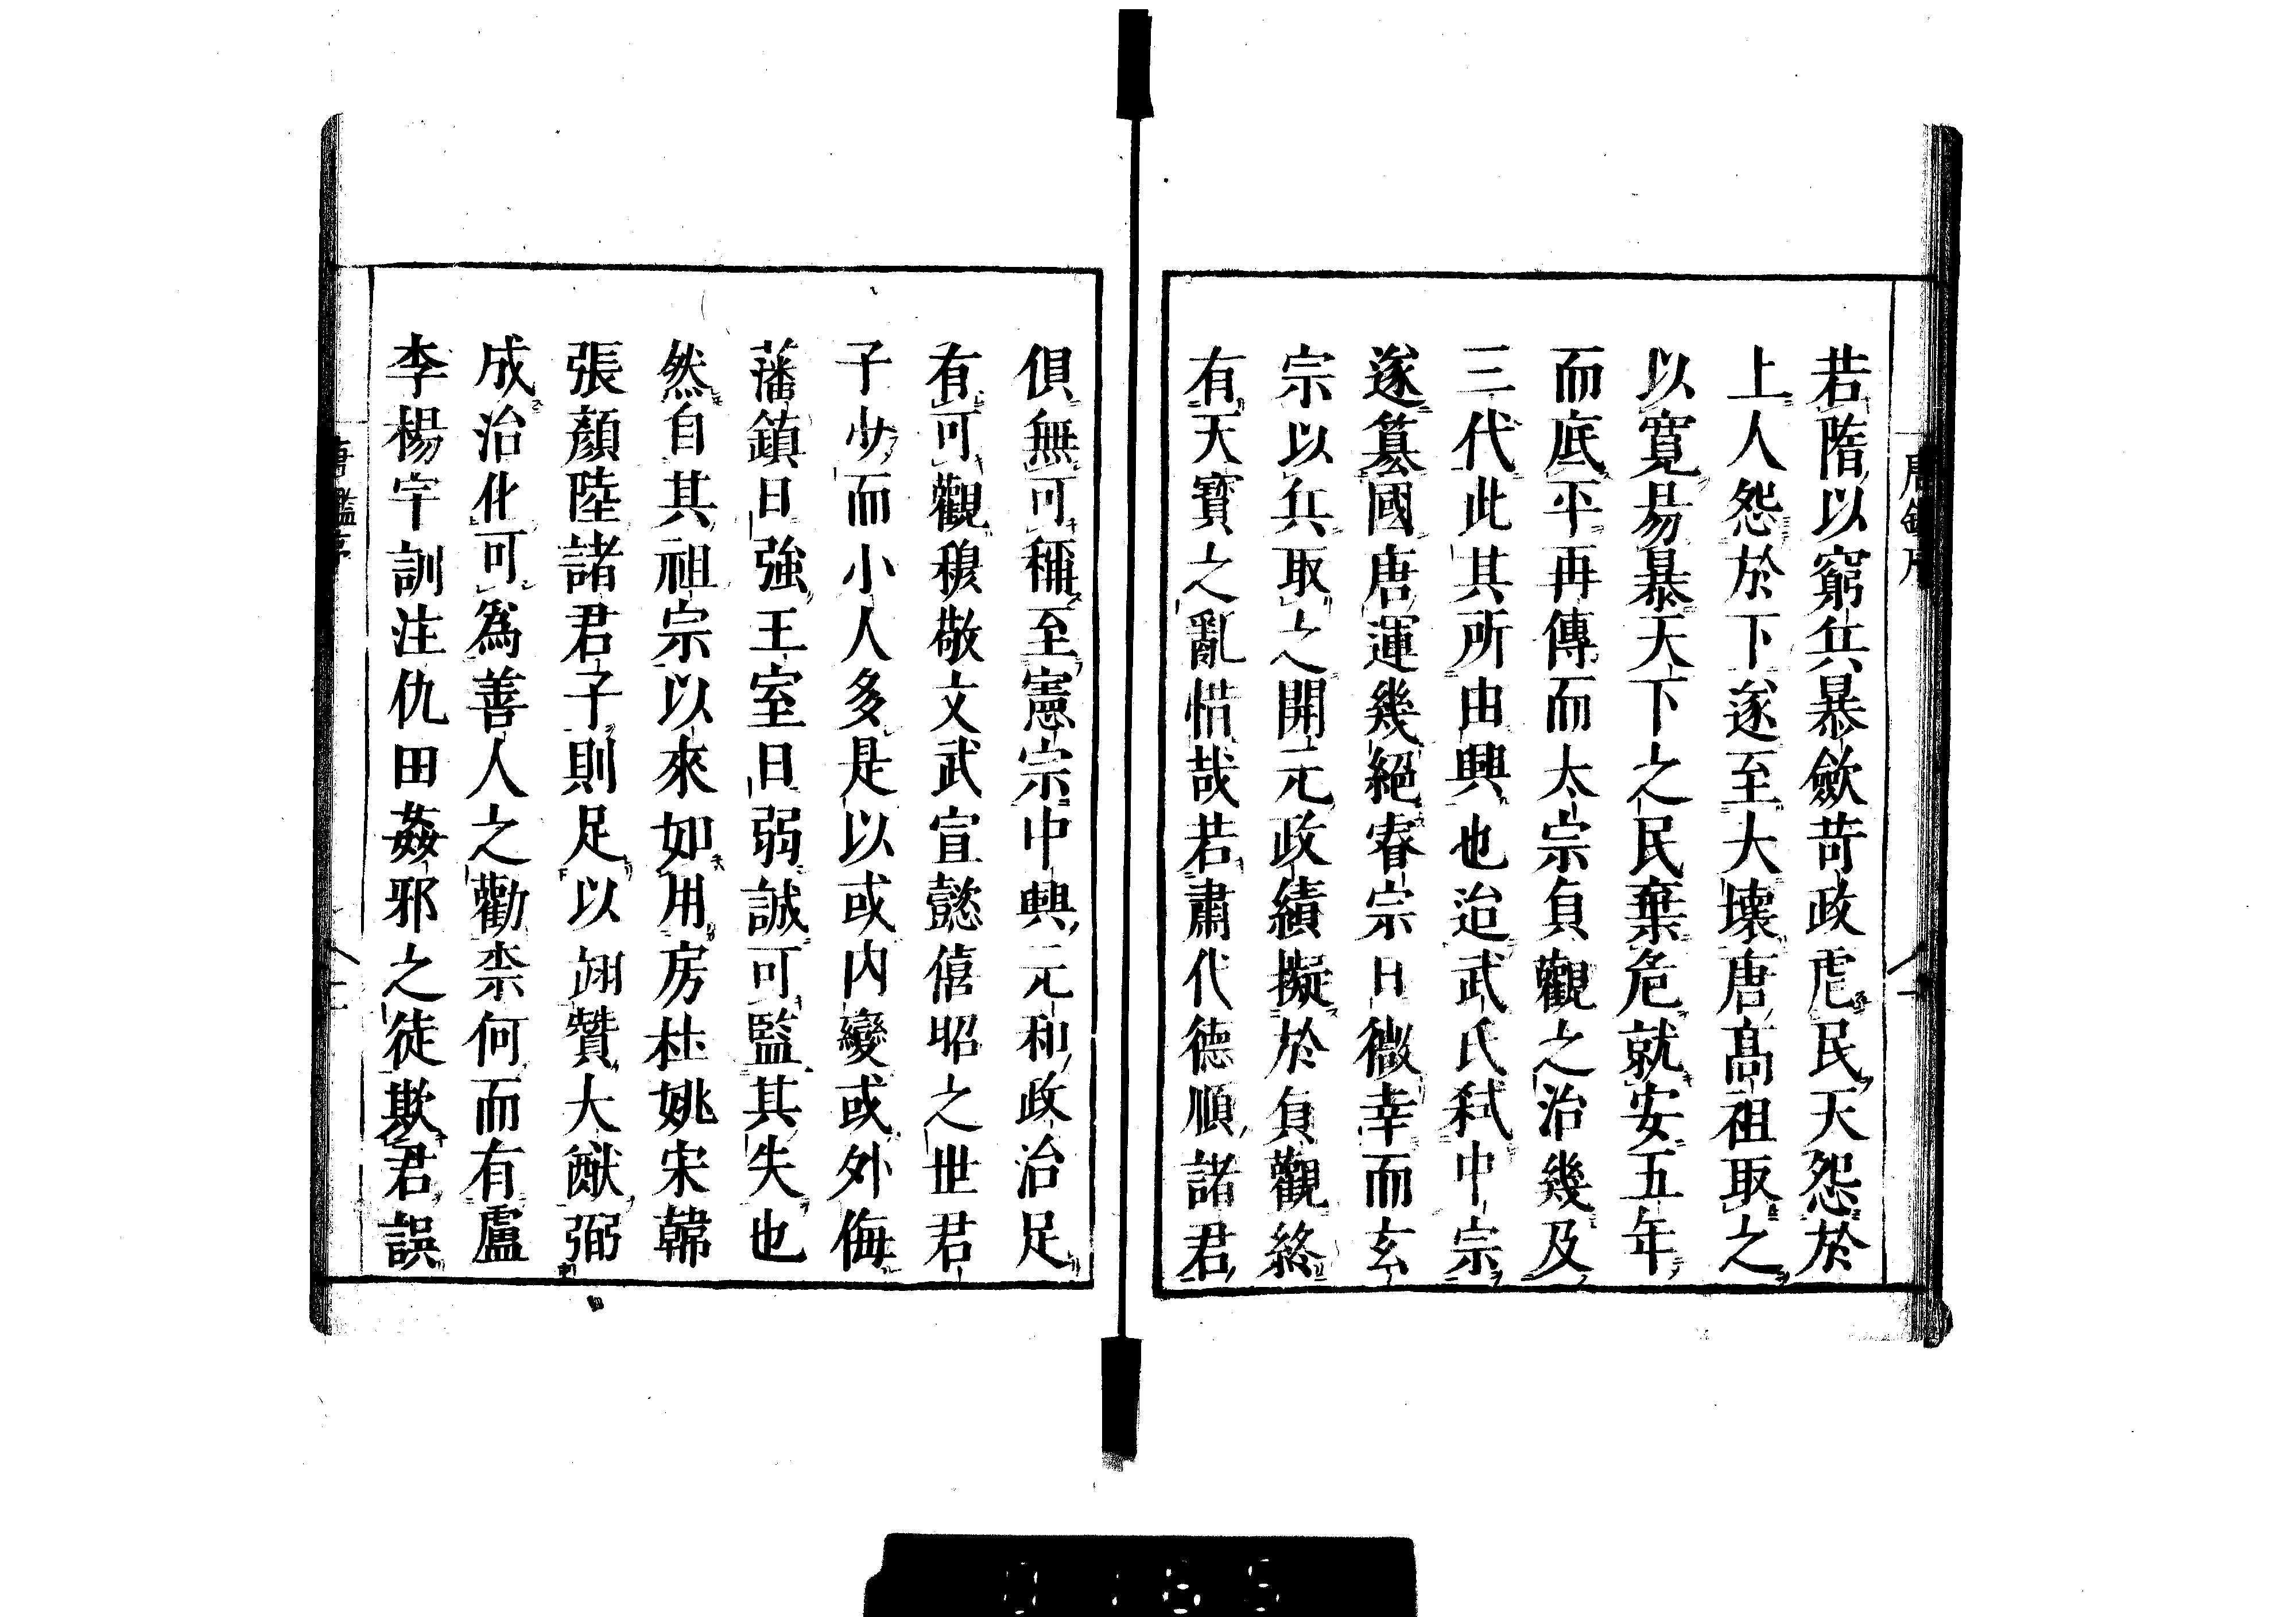 若隋以窮兵暴歛苛政虐民天怨於
上人怨於下遂至大壞唐高祖取之
以寬易暴天下之民棄危就安五年
而底平再傳而太宗貞觀之治幾及
三代此其所由興也迨武氏弑中宗
遂簒國唐運幾絕睿宗日微幸而玄
宗以兵取之開元政績擬於貞觀終
有天寶之亂惜哉若肅代德順諸君
俱無可稱至憲宗中興元和政治足
有可觀穆敬文武宣懿僖昭之世君
子少而小人多是以或內變或外侮
藩鎮日強王室日弱誠可監其失也
然自其祖宗以來如用房杜姚宋韓
張顏陸諸君子則足以翊贊大猷弼
成治化可為善人之勸柰何而有盧
李楊宇訓注仇田姦邪之徒欺君誤
唐鑑序